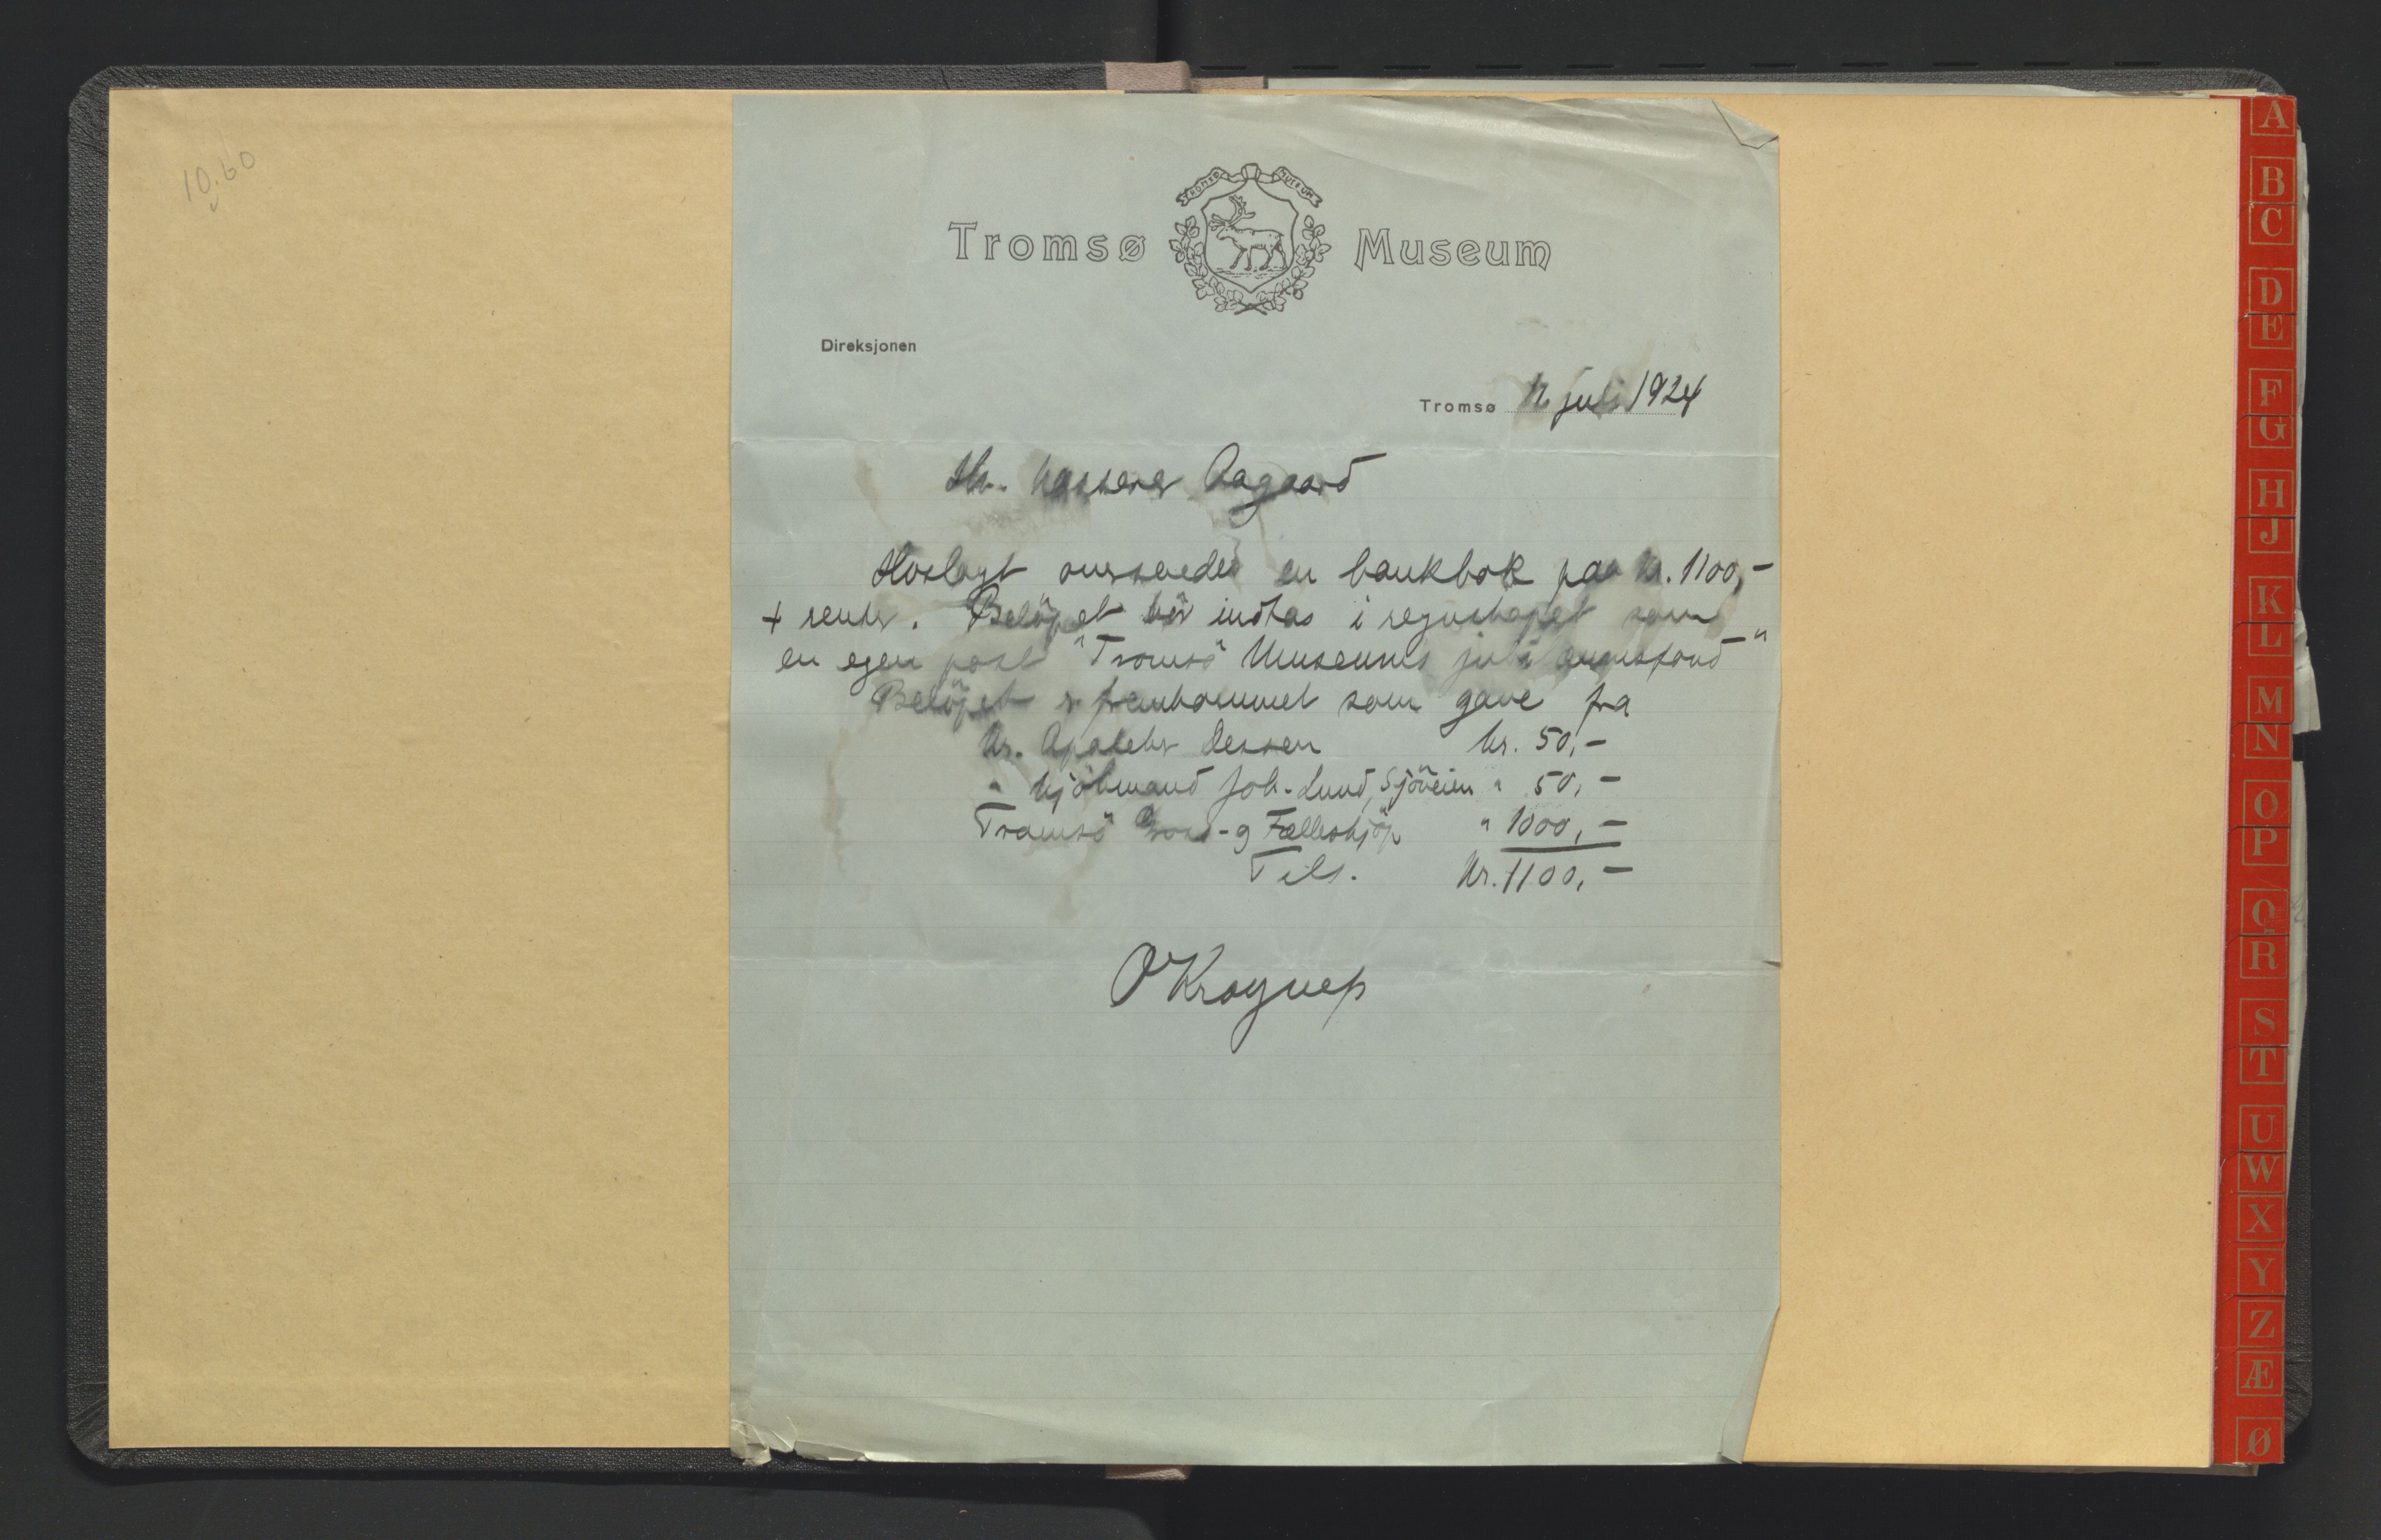 10.60
TROMSØ MUSEUM
Tromsø Museum
Direksjonen
Tromsø 11 juli 1924
Hr. kasserer Aagaard
Hoslagt oversendes en bankbok paa kr. 1100,-
+ renter. Beløpet bør indtas i regnskapet som
en egen post "Tromsø Museums jubilæumsfond"
Beløpet er fremkommet som gave fra
Hr. Apoteker Jessen kr. 50,-
" Kjøbmand Joh. Lund, Sjøveien " 50,-
Tromsø -og Fælleskjøp " 1000,-
Tils. Kr. 1100,-
O Krognep
A
B
C
D
E
F
G
H
J
K
L
M
N
O
P
Q
R
S
T
U
W
X
Y
Z
Æ
Ø